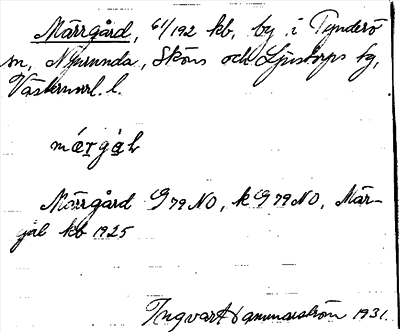 Märrgård, 61/192 kb, by i Tynderö
sn, Njurunda, Sköns och Ljustorps tg,
Västernorrl. l.
märgaḷ
Märrgård G 79 NO, k G 79 NO, Mär-
gål kb 1925
Ingvar 1931.